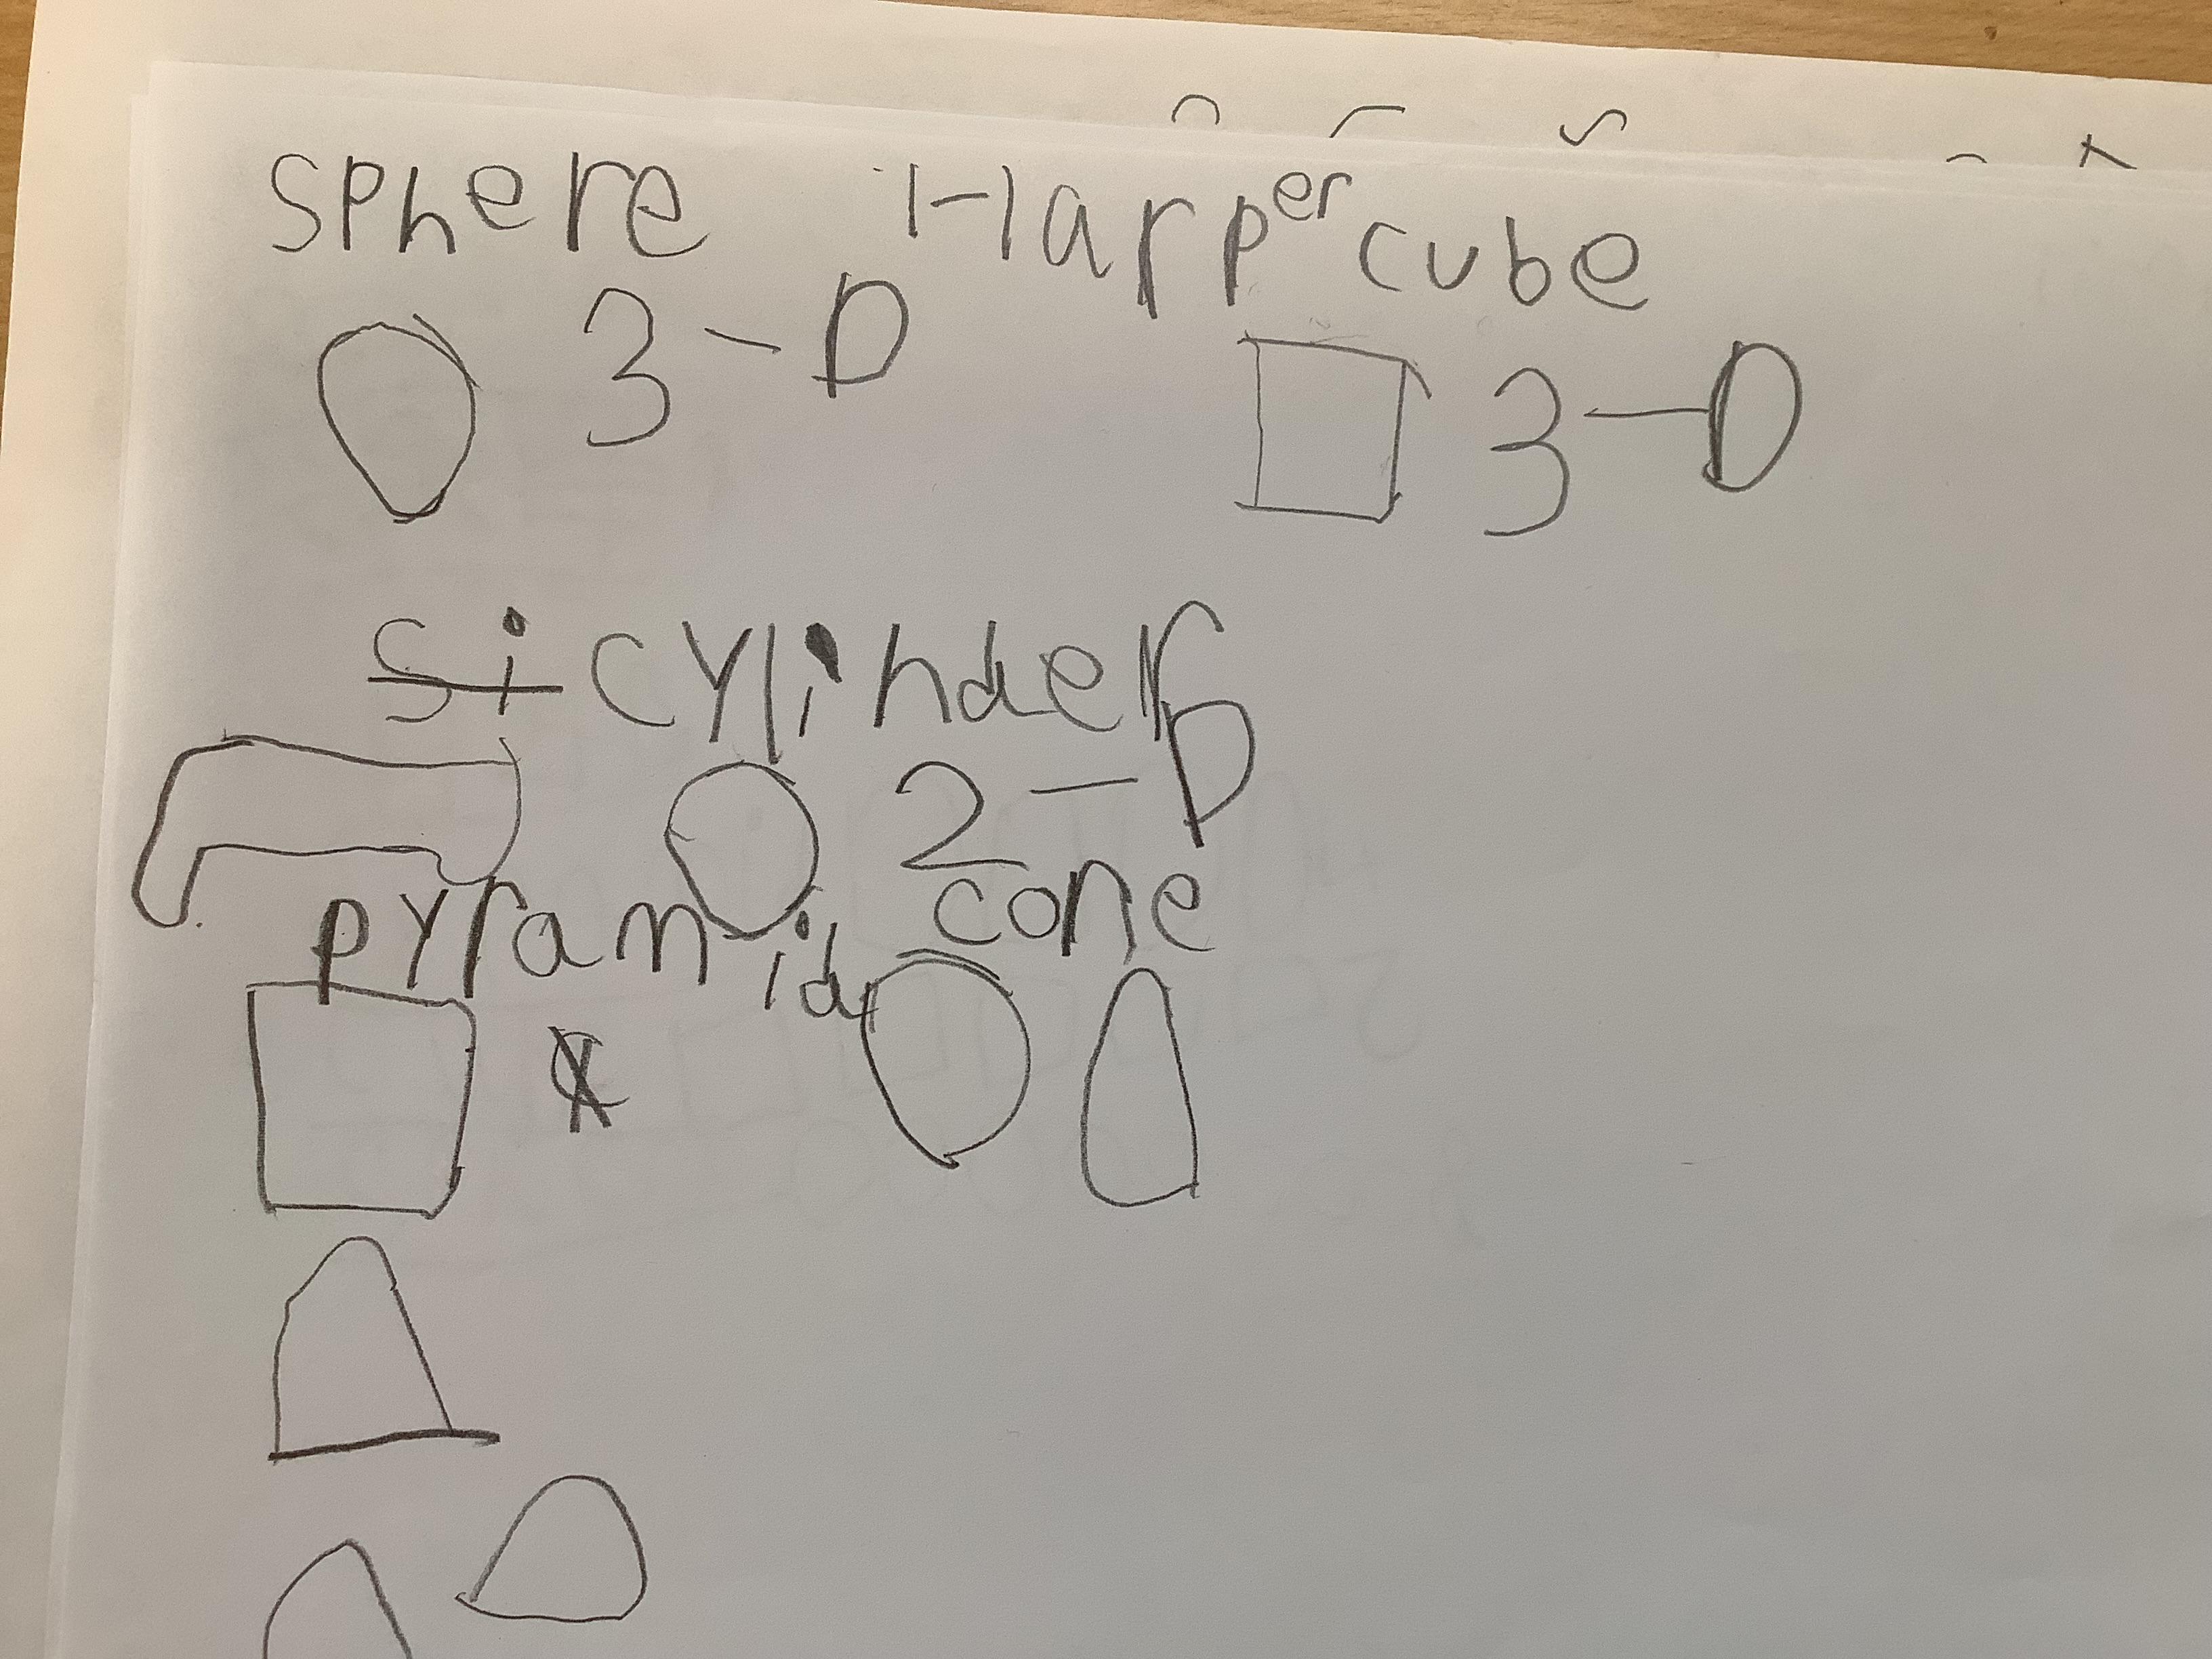 sphere Harper cube
3-D 3-D
si cylinder
2-D
pyramid cone